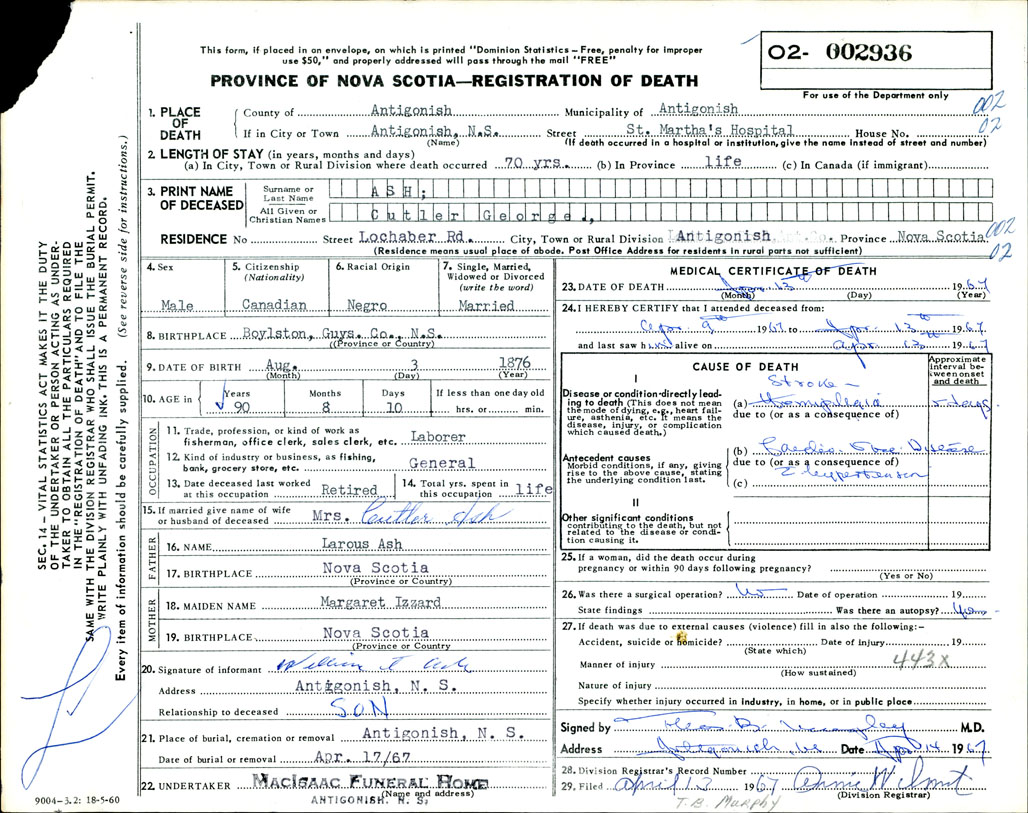 This form, if placed in an envelope, on which is printed "Dominion Statistics – Free, penalty for improper
use $50," and properly addressed will pass through the mail "FREE"
PROVINCE OF NOVA SCOTIA—REGISTRATION OF DEATH
02- 002936
For use of the Department only
1. PLACE OF DEATH
County of Antigonish Municipality of Antigonish 002
If in City or Town Antigonish, N.S. Street St. Martha's Hospital House No. 02
(Name) (If death occurred in a hospital or institution, give the name instead of street and number)
2. LENGTH OF STAY (in years, months and days)
(a) In City, Town or Rural Division where death occurred 70 yrs. (b) In Province life (c) In Canada (if immigrant)
3. PRINT NAME OF DECEASED
Surname or Last Name ASH;
All Given or Christian Names Cutler George.,
RESIDENCE No Street Lochaber Rd. City, Town or Rural Division Antigonish Province Nova Scotia 002
(Residence means usual place of abode. Post Office Address for residents in rural parts not sufficient) 02
4. Sex
Male
5. Citizenship (Nationality)
Canadian
6. Racial Origin
Negro
7. Single, Married, Widowed or Divorced (write the word)
Married
8. BIRTHPLACE Boylston, Guys. Co., N.S.
((Province or Country)
9. DATE OF BIRTH Aug. 3 1876
(Month) (Day) (Year)
10. AGE in Years Months Days If less than one day old
90 8 10 hrs. or min.
OCCUPATION
11. Trade, profession, or kind of work as fisherman, office clerk, sales clerk, etc. Laborer
12. Kind of industry or business, as fishing, bank, grocery store, etc. General
13. Date deceased last worked at this occupation Retired
14. Total yrs. spent in this occupation life
15. If married give name of wife or husband of deceased Mrs. Cutler Ash
FATHER
16. NAME Larous Ash
17. BIRTHPLACE Nova Scotia
(Province or Country)
MOTHER
18. MAIDEN NAME Margaret Izzard
19. BIRTHPLACE Nova Scotia
(Province or Country)
20. Signature of informant William Ash
Address Antigonish, N. S.
Relationship to deceased SON
21. Place of burial, cremation or removal Antigonish, N. S.
Date of burial or removal Apr. 17/67
22. UNDERTAKER MACISAAC FUNERAL HOME
(Name and address)
ANTIGONISH, N. S.
MEDICAL CERTIFICATE OF DEATH
23. DATE OF DEATH Apr. 13th 1967
(Month) (Day) (Year)
24. I HEREBY CERTIFY that I attended deceased from:
Apr. 9th 1967 to Apr. 13th 1967
and last saw him alive on Apr 13 1967
CAUSE OF DEATH
Approximate interval between onset and death
I
Disease or condition directly leading to death (This does not mean the mode of dying, e.g., heart failure, asthenia, etc. It means the disease, injury, or complication which caused death.)
Stroke –
(a) Hemiplegia 5 days
due to (or as a consequence of)
Antecedent causes
Morbid conditions, if any, giving rise to the above cause, stating the underlying condition last.
(b) Cardio Vasc Disease
due to (or as a consequence of)
(c) Hypertension
II
Other significant conditions contributing to the death, but not related to the disease or condition causing it.
25. If a woman, did the death occur during
pregnancy or within 90 days following pregnancy?
(Yes or No)
26. Was there a surgical operation? No Date of operation 19
State findings Was there an autopsy?
27. If death was due to external causes (violence) fill in also the following:–
Accident, suicide or homicide? Date of injury 19
(State which)
Manner of injury 443X
(How sustained)
Nature of injury
Specify whether injury occurred in industry, in home, or in public place
Signed by M.D.
Address Antigonish, NS Date Apr 14 1967
28. Division Registrar's Record Number
29. Filed April 13 1967
(Division Registrar)
T.B. Murphy
SEC. 14 - VITAL STATISTICS ACT MAKES IT THE DUTY
OF THE UNDERTAKER OR PERSON ACTING AS UNDER-
TAKER TO OBTAIN ALL THE PARTICULARS REQUIRED
IN THE "REGISTRATION OF DEATH" AND TO FILE THE
SAME WITH THE DIVISION REGISTRAR WHO SHALL ISSUE THE BURIAL PERMIT.
WRITE PLAINLY WITH UNFADING INK. THIS IS A PERMANENT RECORD.
Every item of information should be carefully supplied. (See reverse side for instructions.)
9004-3.2: 18-5-60